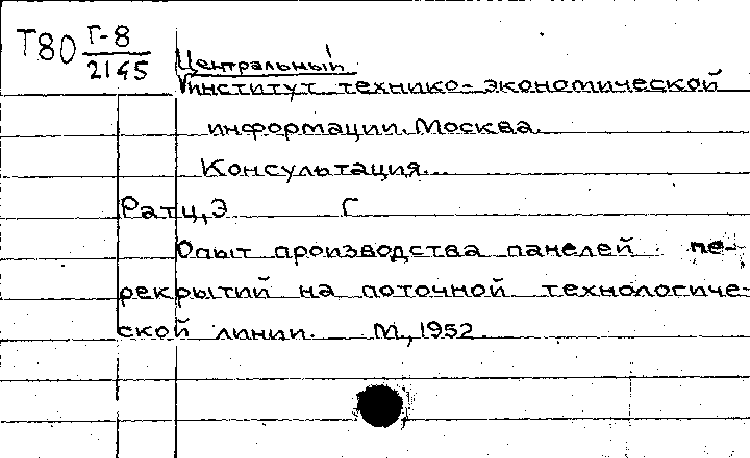 Т80 Г-8
2145
Центральный
институт технико-экономической
информации. Москва.
Консультация.
Ратц, Э Г
Опыт производства панелей пе-
рекрытий на поточной технологиче-
ской линии. М., 1952